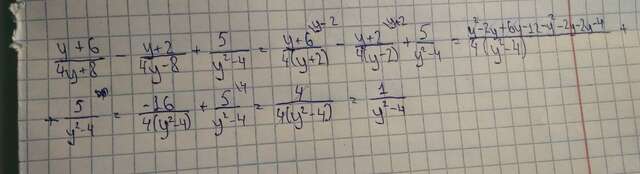 (y+6)/(4y+8) - (y+2)/(4y-8) + 5/(y²-4) = (y+6)/(4(y+2)) ^(y-2) - (y+2)/(4(y-2)) ^(y+2) + 5/(y²-4) = (y²-2y+6y-12-y²-2y-2y-4)/(4(y²-4)) +
+ 5/(y²-4) = (-16)/(4(y²-4)) + 5/(y²-4) ^(\4) = 4/(4(y²-4)) = 1/(y²-4)